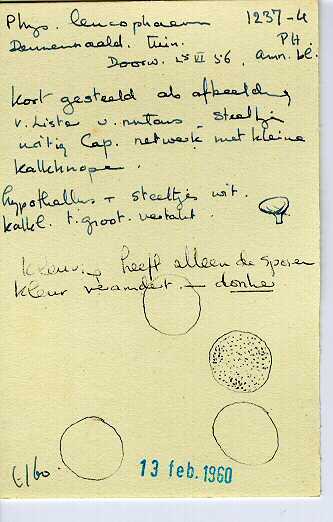 Phys. leucophaeum 1237-4
Dennenwald. Tuin. PH.
Doorw. 25 VI 56, Ann. bl.
Kort gesteeld als afbeelding
v. Lister v. nutans - steeltje
witig Cap. netwerk met kleine
kalkknopen.
hypothallus + steeltjes wit.
kalkl. t. groot. vertakt.
Kleuring heeft alleen de sporen
kleur verandert - donker
6/60.
13 feb. 1960